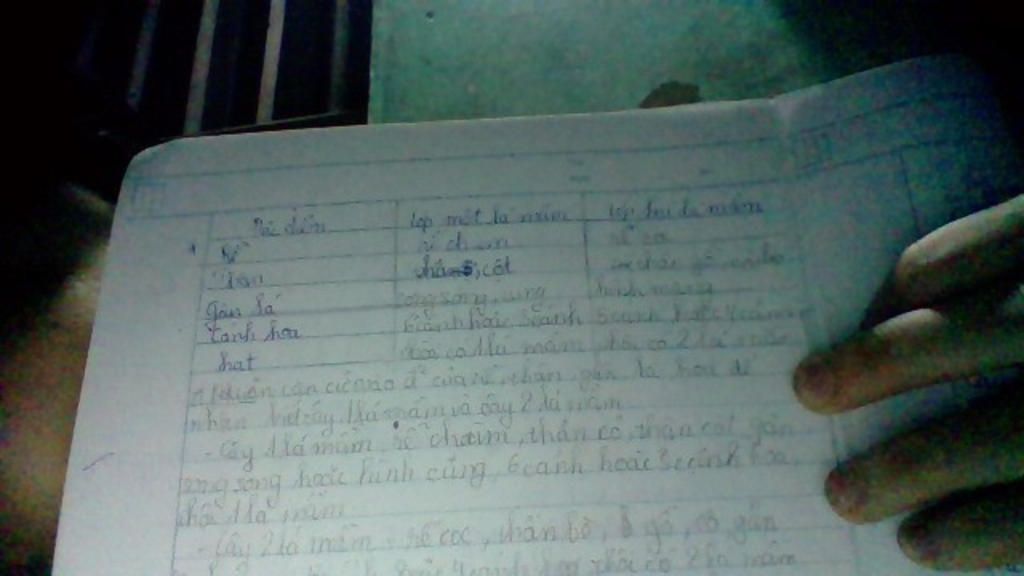 Đặc điểm lớp một lá mầm lớp hai lá mầm
Rễ rễ chùm rễ cọc
Thân thân cỏ, cột
Gân lá song song, cung hình mạng
Cánh hoa 6 cánh hoặc 3 cánh 5 cánh hoặc 4 cánh
hạt phôi có 1 lá mầm phôi có 2 lá mầm
của rễ, thân, gân lá, hoa để
nhận biết cây 1 lá mầm và cây 2 lá mầm
- Cây 1 lá mầm: rễ chùm, thân cỏ, thân cột, gân
song song hoặc hình cung, 6 cánh hoặc 3 cánh hoa,
phôi 1 lá mầm
- Cây 2 lá mầm: rễ cọc, thân bò, gỗ, cỏ, gân
phôi có 2 lá mầm